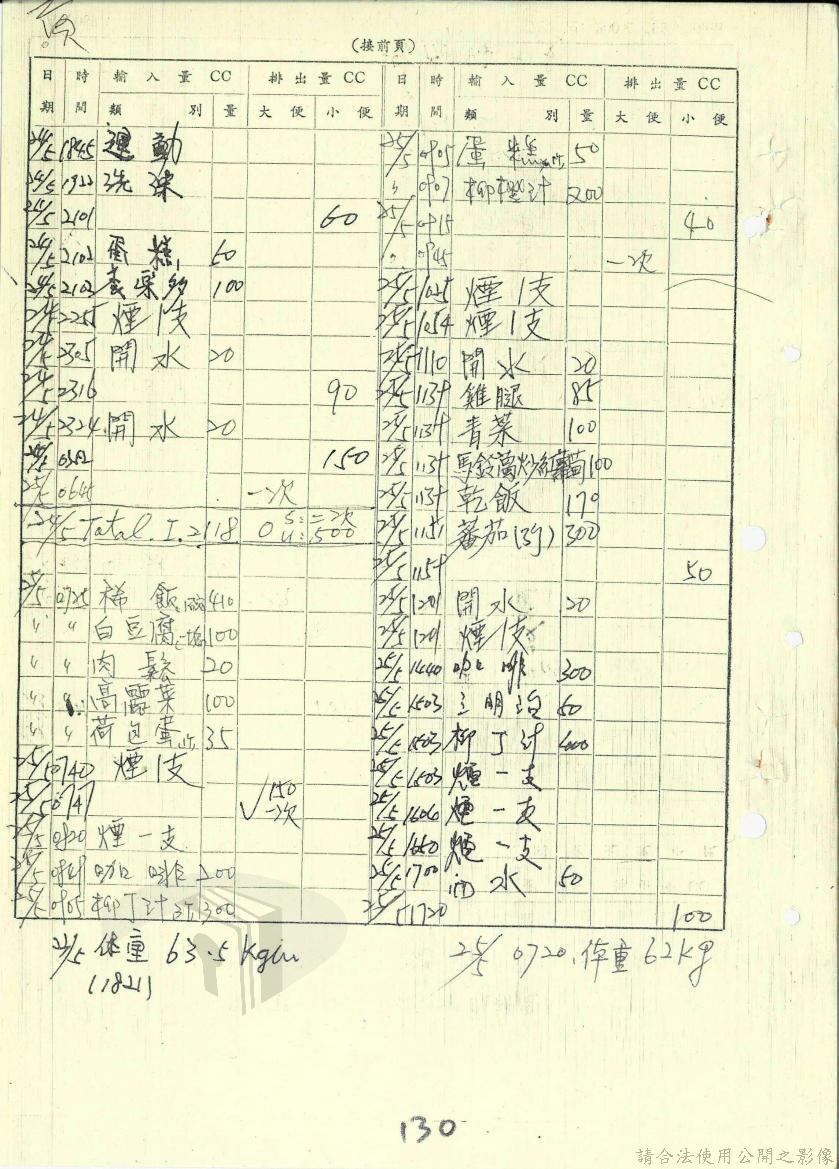 (接前頁)
日期 時間 輸入量CC 排出量CC
類別 量 大便 小便
24/5 1845 運動
24/5 1922 洗澡
24/5 2101 60
24/5 2102 蛋糕 60
24/5 2102 養樂多 100
24/5 2255 煙1支
24/5 2305 開水 20
24/5 2316 90
24/5 2324 開水 20
150
25/5 0645 一次
24/5 Total. I. 2118 O S:=二次 U:500
25/5 0725 稀飯 410
〃 〃 白豆腐 100
〃 〃 肉鬆 20
〃 〃 高麗菜 100
〃 〃 荷包蛋 35
25/5 0740 煙1支
25/5 0747 √150 一次
25/5 0820 煙一支
25/5 0849 咖啡 200
25/5 0905 柳丁汁 300
日期 時間 輸入量CC 排出量CC
類別 量 大便 小便
25/5 0905 蛋糕 50
〃 0907 柳橙汁 200
25/5 0915 40
〃 0945 一次
25/5 1025 煙1支
25/5 1054 煙1支
25/5 1110 開水 20
25/5 1134 雞腿 85
25/5 1134 青菜 100
25/5 1134 馬鈴薯炒 100
25/5 1134 乾飯 170
25/5 1151 蕃茄 300
25/5 1154 50
25/5 1201 開水 20
25/5 1201 煙1支
25/5 1440 咖啡 300
25/5 1503 三明治 60
25/5 1503 柳丁汁
25/5 1503 煙一支
25/5 1606 煙一支
25/5 1650 煙一支
25/5 1700 水 50
25/5 1720 100
体重 63.5 Kg
(1821)
25/5 0720. 体重 62kg
130
請合法使用公開之影像